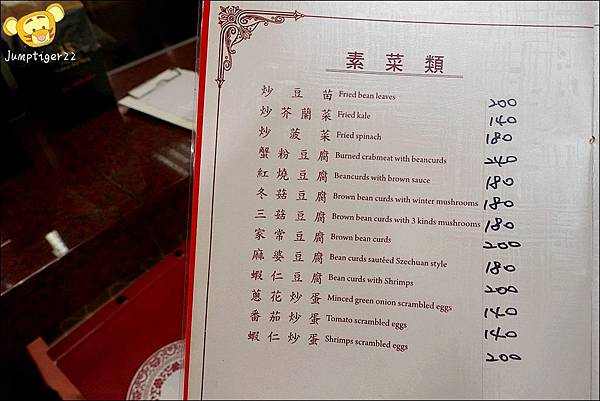 Jumptiger22
素菜類
炒豆苗 Fried bean leaves 200
炒芥蘭菜 Fried kale 140
炒菠菜 Fried spinach 180
蟹粉豆腐 Burned crabmeat with beancurds 240
紅燒豆腐 Beancurds with brown sauce 180
冬菇豆腐 Brown bean curds with winter mushrooms 180
三菇豆腐 Brown bean curds with 3 kinds mushrooms 180
家常豆腐 Brown bean curds 200
麻婆豆腐 Bean curds sautéed Szechuan style 180
蝦仁豆腐 Bean curds with Shrimps 200
蔥花炒蛋 Minced green onion scrambled eggs 140
番茄炒蛋 Tomato scrambled eggs 140
蝦仁炒蛋 Shrimps scrambled eggs 200